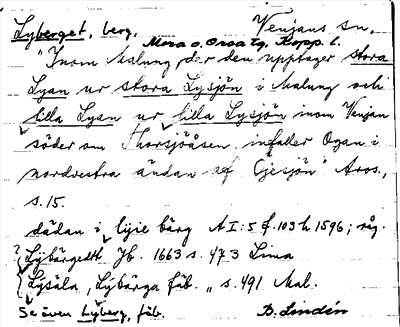 Lyberget, berg. Venjans sn,
Mora o. Orsa tg, Kopp. l.
"Inom Malung, der den upptager stora
Lyan ur stora Lysjön i Malung och
lilla Lyan ur lilla Lysjön inom Venjan
söder om Thorsjöåsen infaller Ogan i
nordvestra ändan af Öjesjön" Aros.,
s. 15.
dädan i lyie bärg A I:5 f. 103 h 1596; råg.
? Lybärgedtt Jb. 1663 s. 473 Lima
Lysäla, Lybärga fäb. " s. 491 Mal.
Se även Lyberg, fäb. B. Lindén